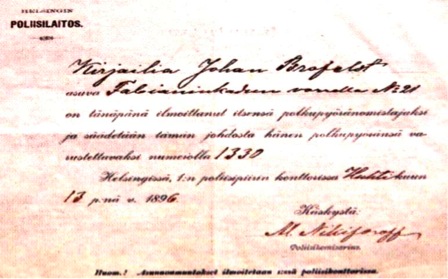 HELSINGIN
POLIISILAITOS.
Kirjailia Johan Brofeldt
asuva Fabianinkadun varrella No 21
on tänäpänä ilmoittanut itsensä polkupyöränomistajaksi
ja säädetään tämän johdosta hänen polkupyöränsä va-
rustettavaksi numerolla 1330
Helsingissä, 1:n polisipiirin konttorissa Huhtikuun
13 p:nä v. 1896.
Käskystä:
M. Nikiforoff
Poliisikomisarius.
Huom.! Asunnonmuutokset ilmoitetaan